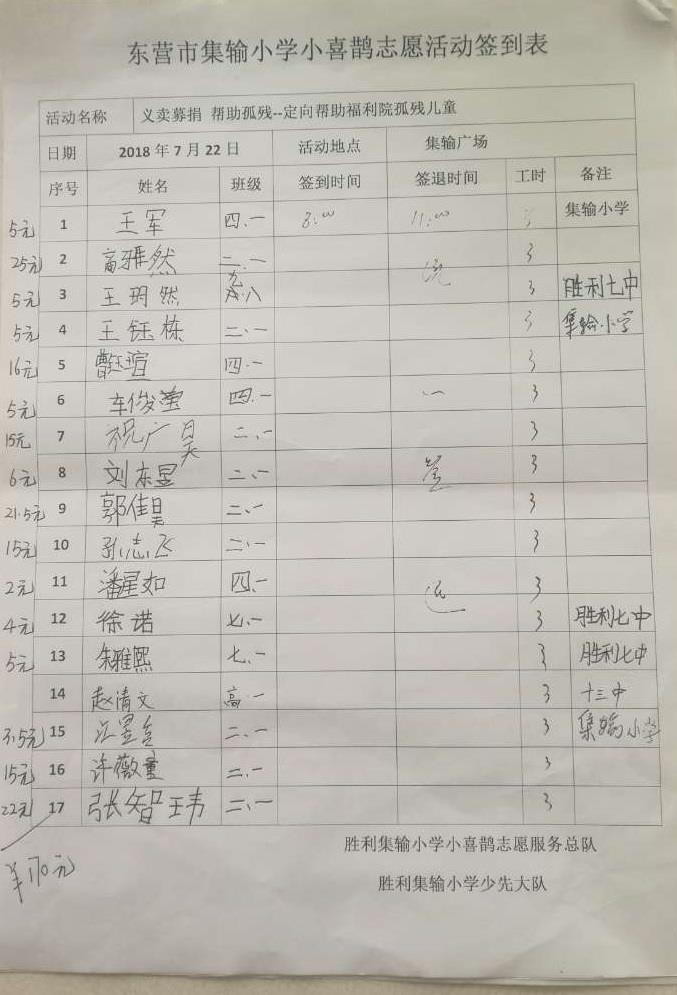 东营市集输小学小喜鹊志愿活动签到表
活动名称 义卖募捐 帮助孤残--定向帮助福利院孤残儿童
日期 2018年7月22日 活动地点 集输广场
序号 姓名 班级 签到时间 签退时间 工时 备注
5元 1 王军 四.一 8:00 11:00 3 集输小学
25元 2 高雅然 二.一 3
5元 3 王玥然 八 统 3 胜利七中
5元 4 王钰栋 二.一 3 集输小学
16元 5 曹钰瑄 四.一 3
5元 6 车俊莹 四.一 一 3
15元 7 祝广昊 二.一 3
6元 8 刘东昱 二.一 签 3
21.5元 9 郭佳昊 二.一 3
15元 10 孙志飞 二.一 3
2元 11 潘星如 四.一 退 3
4元 12 徐诺 七.一 3 胜利七中
5元 13 朱雅熙 七.一 3 胜利七中
14 赵清文 高.一 3 十三中
3.5元 15 江昱 二.一 3 集输小学
15元 16 许薇童 二.一 3
22元 17 张智玮 二.一 3
胜利集输小学小喜鹊志愿服务总队
¥170元
胜利集输小学少先大队